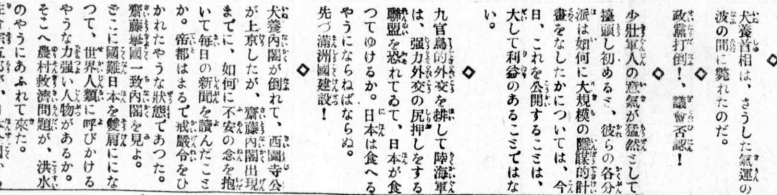 犬養首相は、さうした氣運の
波の間に斃れたのだ。
◇
政黨打倒!、議會否認!
◇
少壯軍人の意氣が猛然として
擡頭し初めると、彼らの各分
派は如何に大規模の陰謀的計
畫をなしたかについては、今
日、これを公開することは、
大して利益のあることではな
い。
◇
九官鳥的外交を排して陸海軍
は、强力外交の尻押しをする
聯盟を恐れてゐて、日本が食
つてゆけるか。日本は食へる
やうにならねばならぬ。
先づ滿洲國建設!
◇
犬養內閣が倒れて、西園寺公
が上京したが、齋藤內閣出現
までに、如何に不安の念を抱
いて每日の新聞を讀んだこと
か。帝都はまるで戒嚴令をひ
かれたやうな狀態であつた。
齋藤擧國一致內閣を見よ。
どこに國難日本を雙肩ににな
つて、世界人類に呼びかける
やうな力强い人物があるか。
そこへ農村救濟問題が、洪水
のやうにあふれて來た。